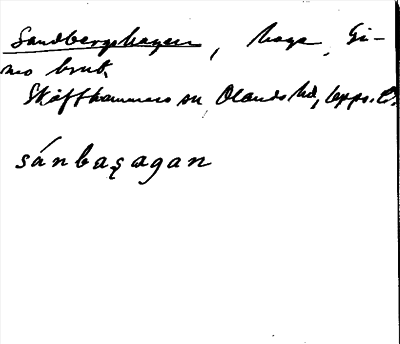 Sandbergshagen, hage, Gi-
mo bruk
Skäfthammars sn Olands hd, Upps. l.
sánbaşagan